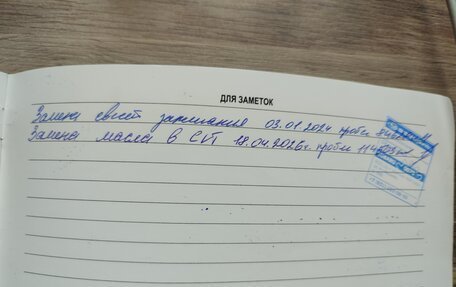 ДЛЯ ЗАМЕТОК
Замена свеч зажигания 03.01.2024 пробег
Замена масла в CVT 18.04.2026г. пробег